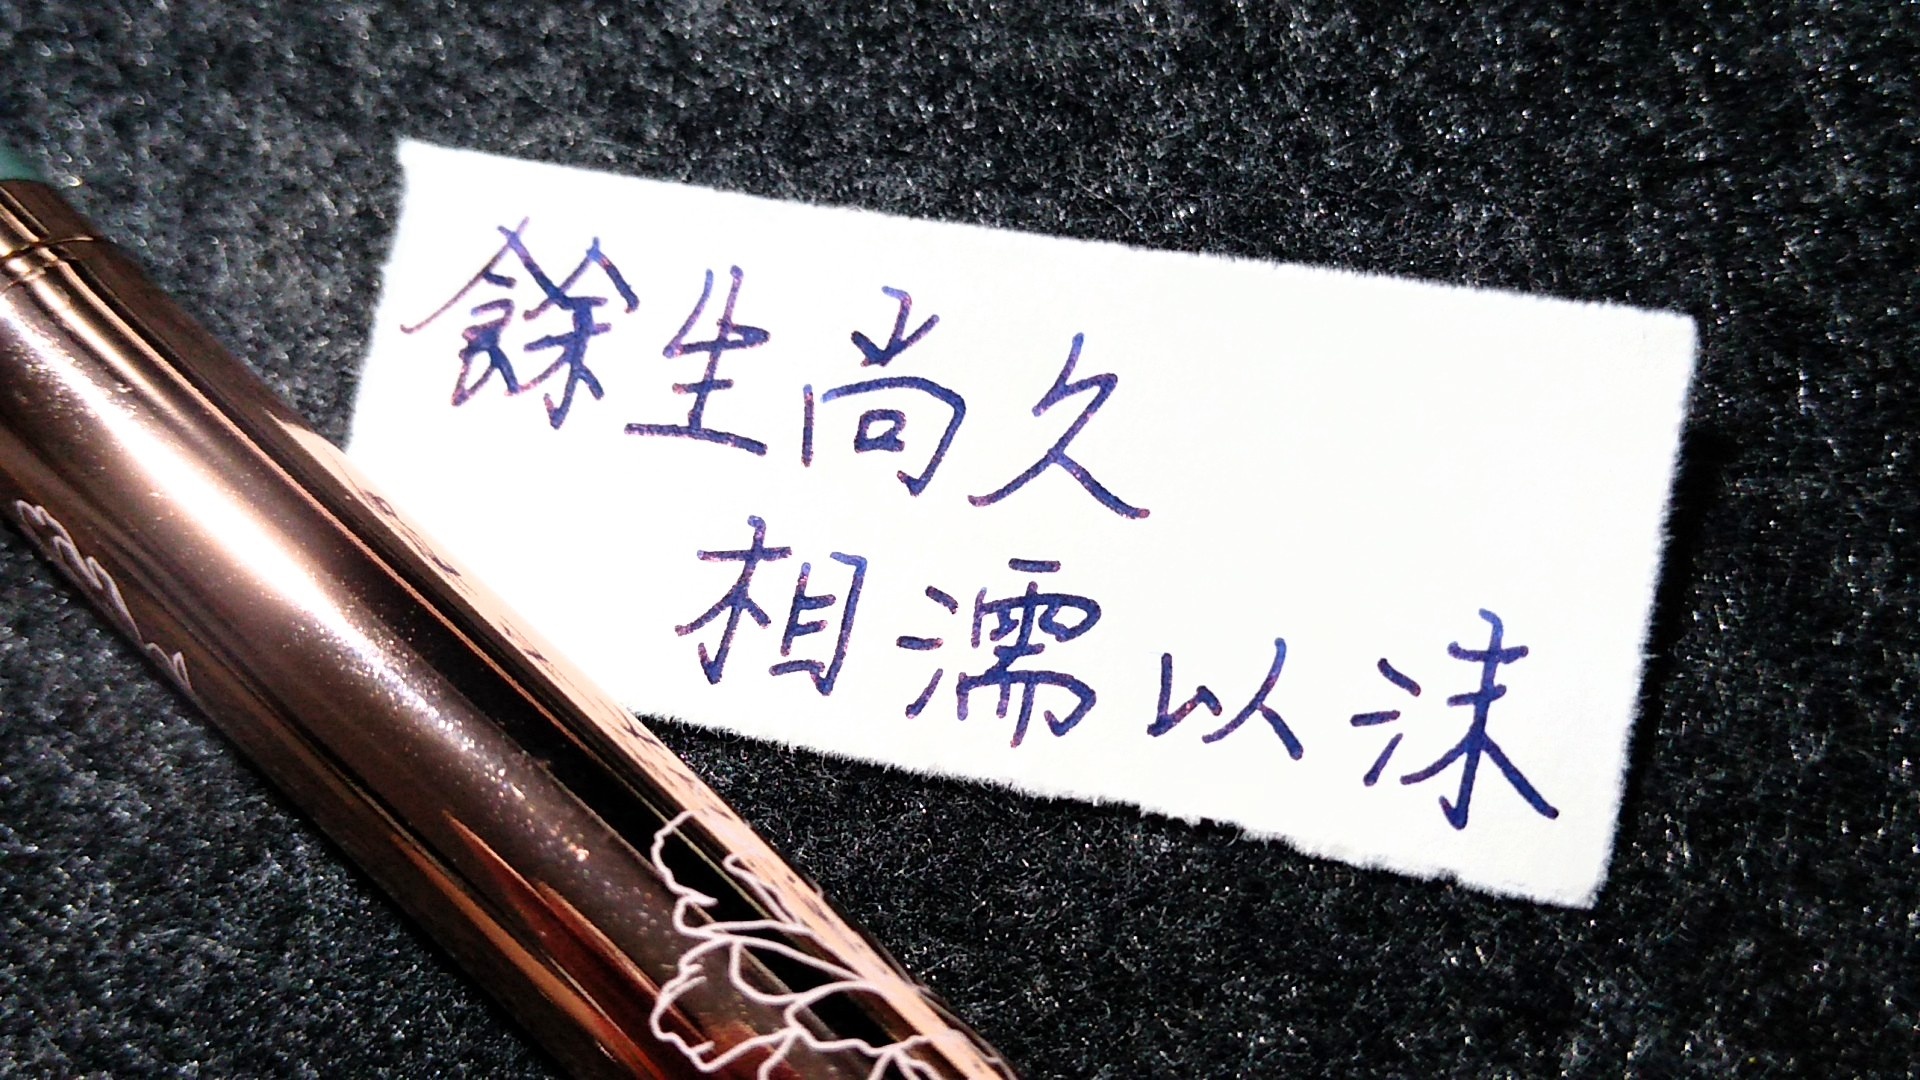 餘生尚久
相濡以沫